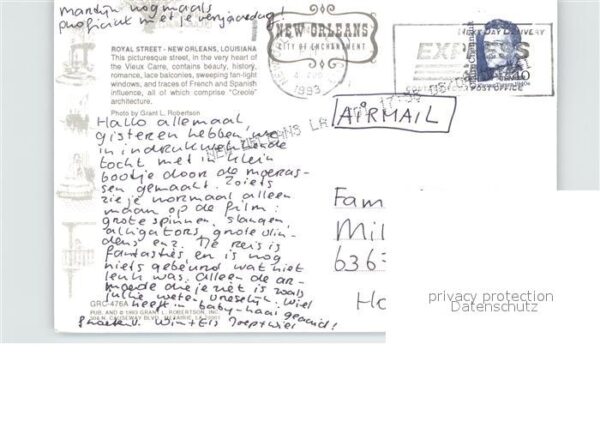 martijn nogmaals
proficiat met je verjaardag!
ROYAL STREET - NEW ORLEANS, LOUISIANA
This picturesque street, in the very heart of
the Vieux Carre, contains beauty, history,
romance, lace balconies, sweeping fan-light
windows, and traces of French and Spanish
influence, all of which comprise "Creole"
architecture.
Photo by Grant L. Robertson
Hallo allemaal
gisteren hebben we
'n indrukwekkende
tocht met 'n klein
bootje door de moeras-
sen gemaakt. Zoiets
zie je normaal alleen
maar op de film:
grote spinnen, slangen
alligators, grote vlin-
ders enz. De reis is
fantasties en is nog
niets gebeurd wat niet
leuk was. alleen de ar-
moede die je ziet is zoals
jullie weten vreselijk. Wiel
heeft 'n baby-haai geaaid!
Groeten v. Wim + Els
GRC-476A
PUB. AND © 1993 GRANT L. ROBERTSON, INC.
304 N. CAUSEWAY BLVD., METAIRIE, LA 70001
NEW ORLEANS
CITY OF ENCHANTMENT
1993
NEXT DAY DELIVERY
EXPRESS
POST OFFICE
NEW ORLEANS LA
AIRMAIL
Fam
Mil
636
Ho
privacy protection
Datenschutz